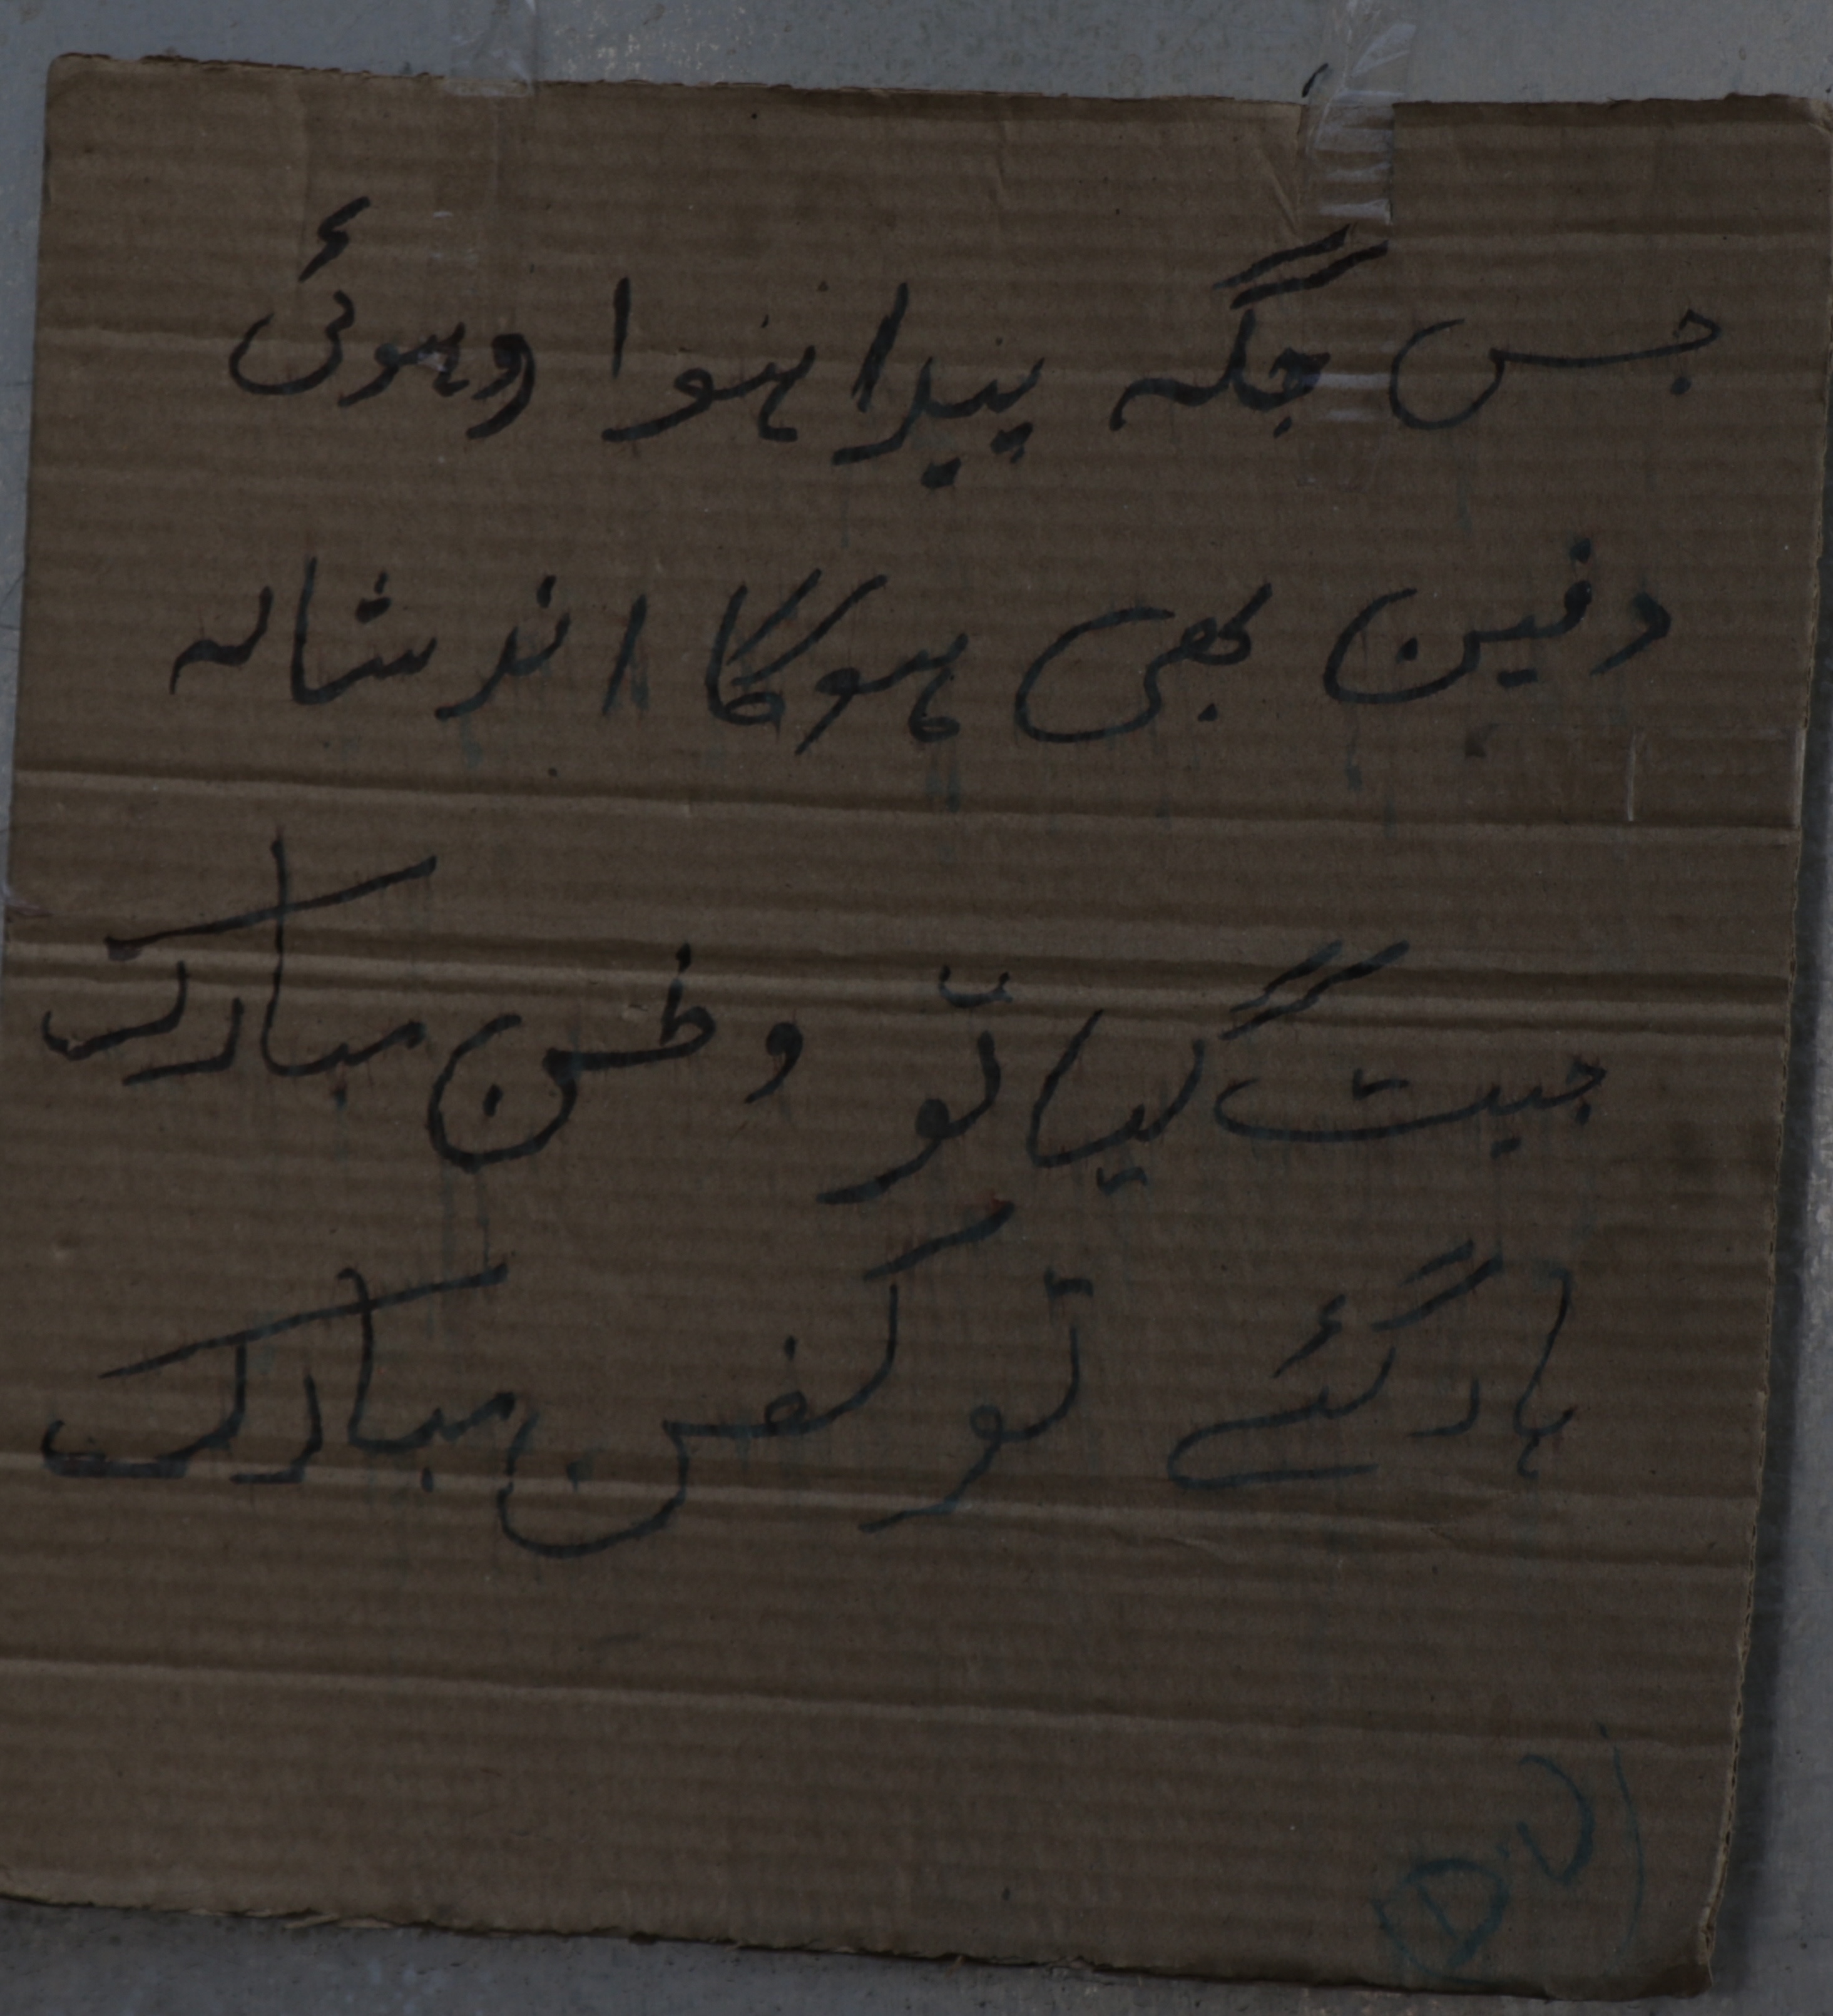 جس جگہ پیدا ہوا وہوئی
دفین بھی ہوگا اندشالہ
جیت گیا تو وطن مبارک
ہار گئے تو کفن مبارک